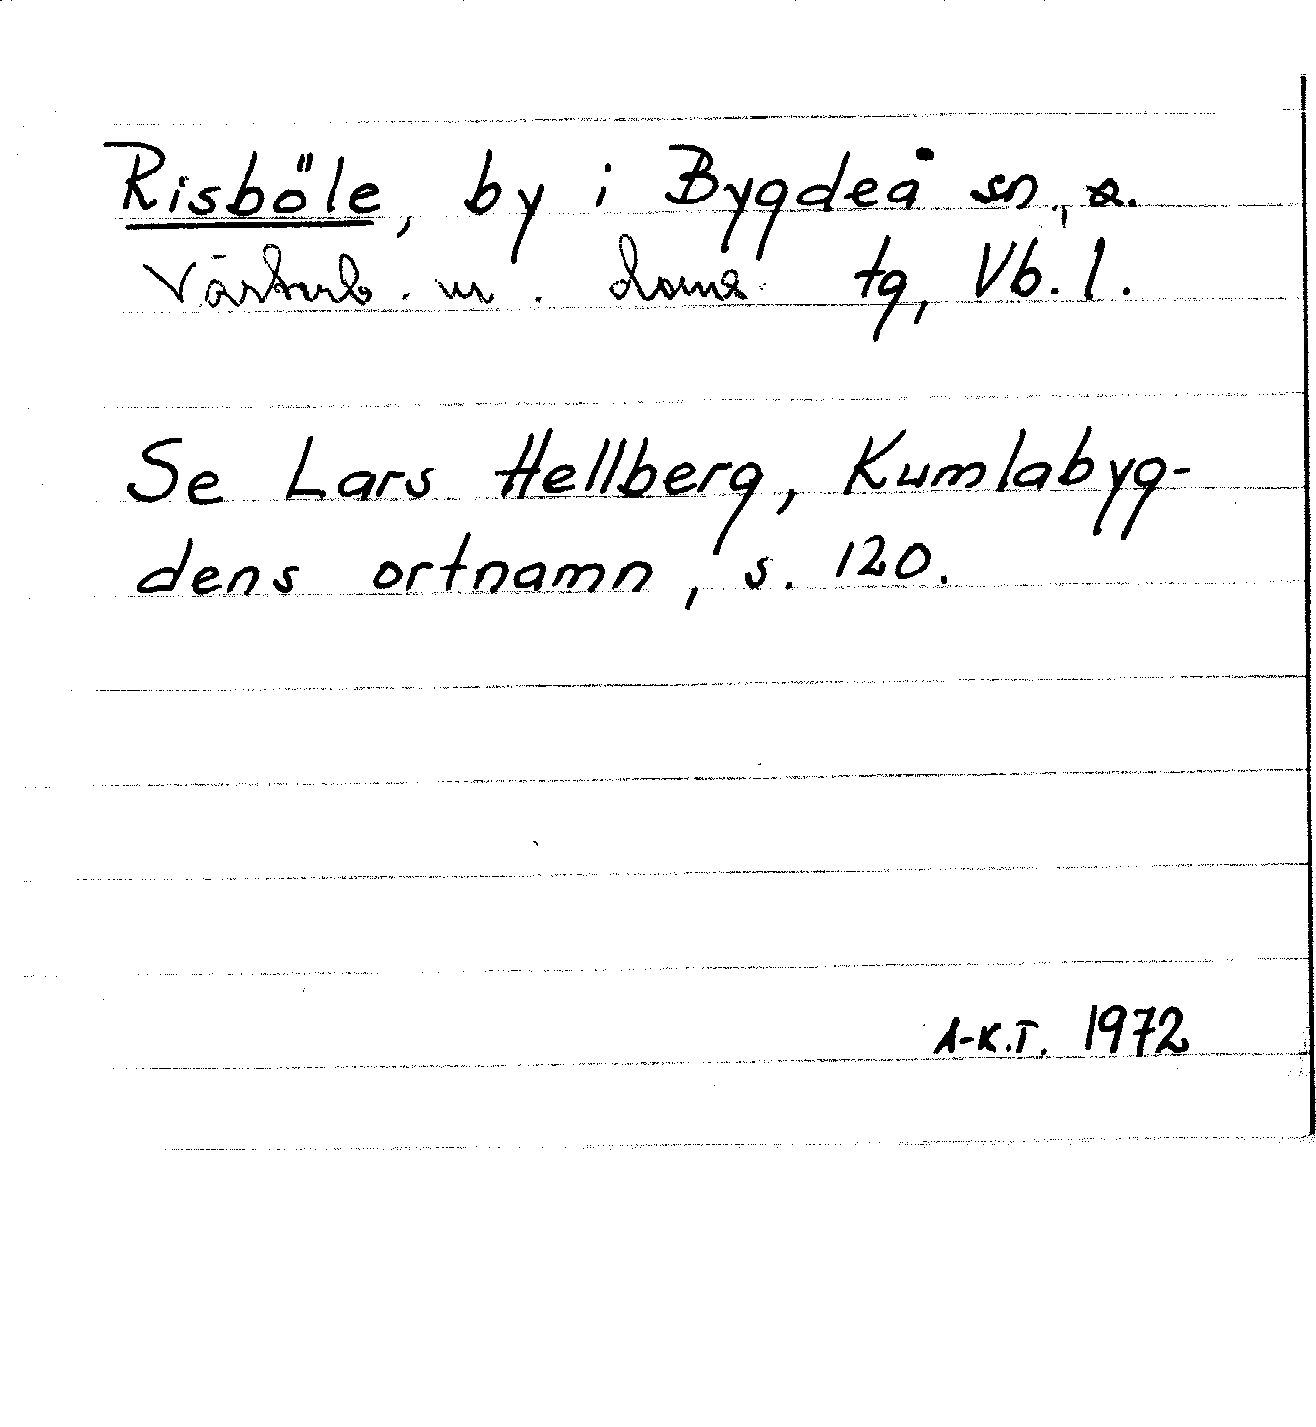 Risböle, by i Bygdeå sn,
Västerb. n. doms. tg, Vb. l.
Se Lars Hellberg, Kumlabyg-
dens ortnamn, s. 120.
A-K.T. 1972